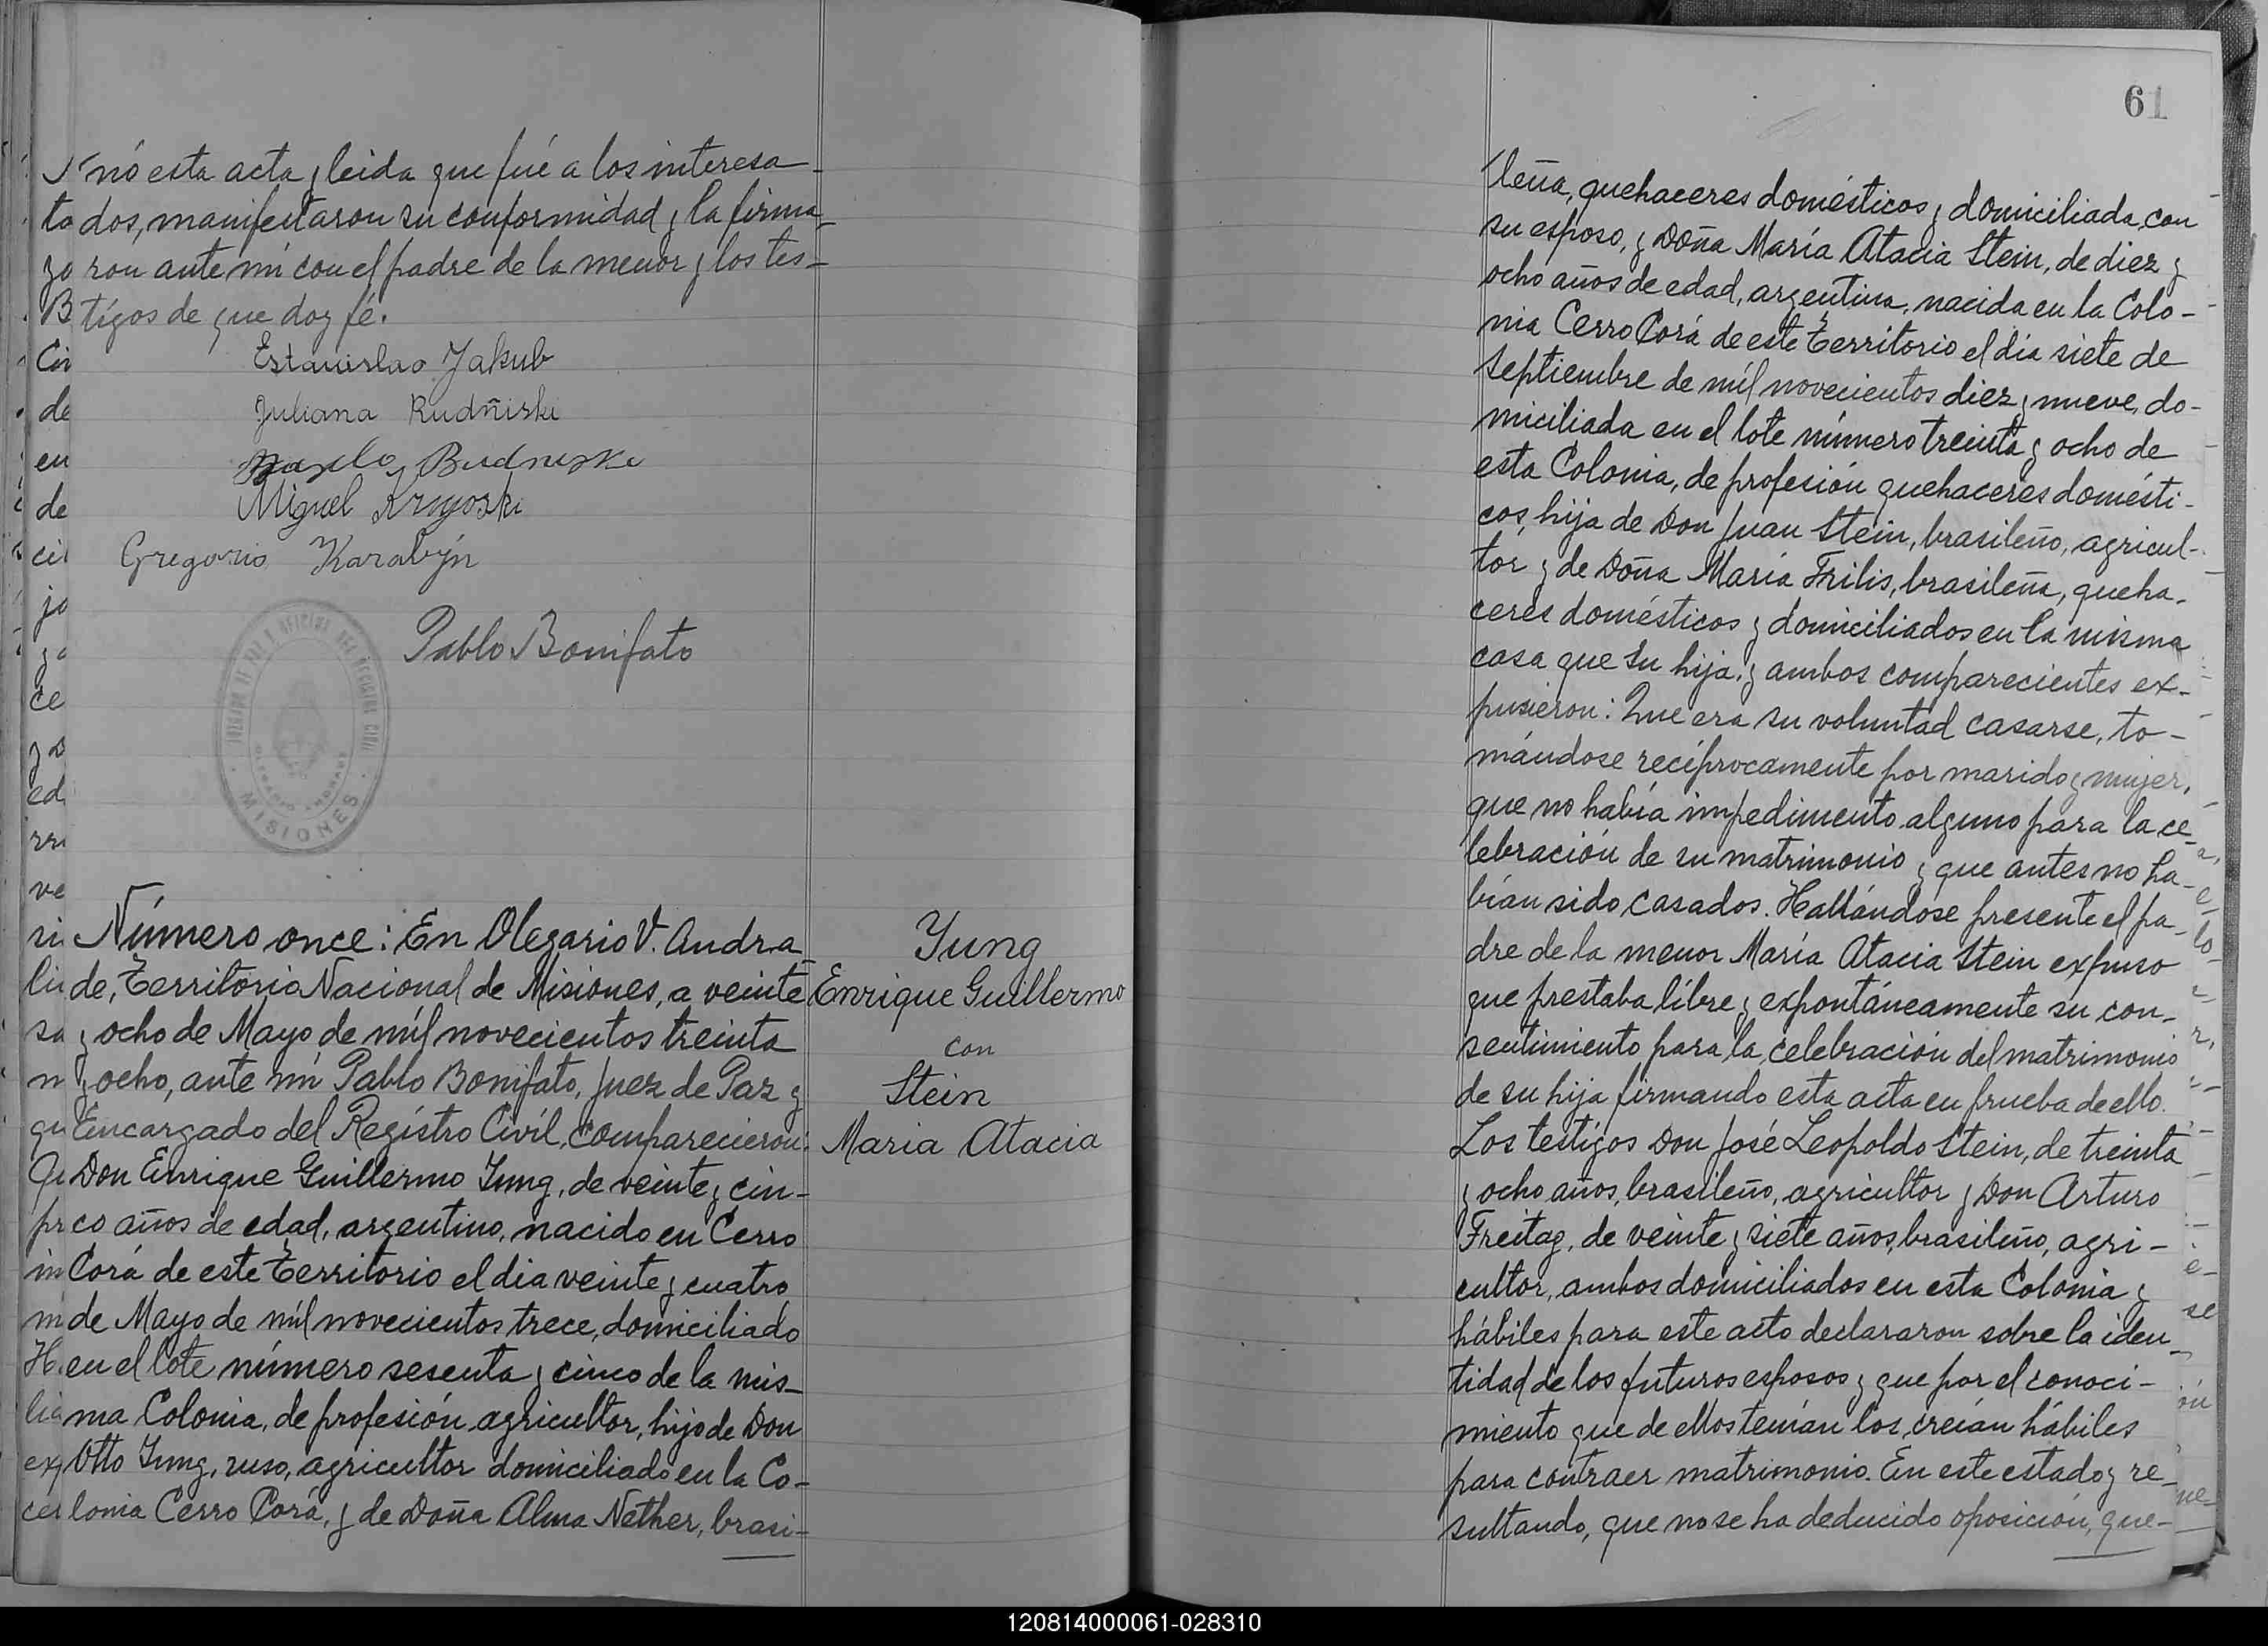 nó esta acta y leida que fué a los interesa-
dos, manifestaron su conformidad y la firma-
ron ante mí con el padre de la menor y los tes-
tigos de que doy fé.
Estanislao Jakub
Juliana Rudñiski
Budniski
Miguel
Gregorio Karabyn
Pablo Bonifato
REGISTRO CIVIL
MISIONES
Número once: En Olegario V. Andra-
de, Territorio Nacional de Misiones, a veinte
y ocho de Mayo de míl novecientos treinta
y ocho, ante mí Pablo Bonifato, Juez de Paz y
Encargado del Regístro Civíl, comparecieron:
Don Enrique Guillermo Yung, de veinte y cin-
co años de edad, argentino, nacido en Cerro
Corá de este Territorio el dia veinte y cuatro
de Mayo de míl novecientos trece, domiciliado
en el lote número sesenta y cinco de la mis-
ma Colonia, de profesión agricultor, hijo de Don
Otto Yung, ruso, agricultor domiciliado en la Co-
lonia Cerro Corá, y de Doña Alma Nether, brasi-
Yung
Enrique Guillermo
con
Stein
Maria Atacia
61
leña, quehaceres domésticos y domiciliada con
su esposo, y Doña María Atacia Stein, de diez y
ocho años de edad, argentina, nacida en la Colo-
nia Cerro Corá de este Territorio el día siete de
Septiembre de míl novecientos diez y nueve, do-
miciliada en el lote número treinta y ocho de
esta Colonia, de profesión quehaceres domésti-
cos, hija de Don Juan Stein, brasileño, agricul-
tor y de Doña María Frilis, brasileña, queha-
ceres domésticos y domiciliados en la misma
casa que su hija; y ambos comparecientes ex-
pusieron: Que era su voluntad casarse, to-
mándose recíprocamente por marido y mujer,
que no había impedimento alguno para la ce-
lebración de su matrimonio y que antes no ha-
bían sido casados. Hallándose presente el pa-
dre de la menor María Atacia Stein expuso
que prestaba líbre y expontáneamente su con-
sentimiento para la celebración del matrimonio
de su hija firmando esta acta en prueba de ello.
Los testigos Don José Leopoldo Stein, de treinta
y ocho años, brasileño, agricultor y Don Arturo
Freitag, de veinte y siete años, brasileño, agri-
cultor, ambos domiciliados en esta Colonia y
hábiles para este acto declararon sobre la iden-
tidad de los futuros esposos y que por el conoci-
miento que de ellos tenían los creían hábiles
para contraer matrimonio. En este estado y re-
sultando, que no se ha deducido oposición, que-
120814000061-028310